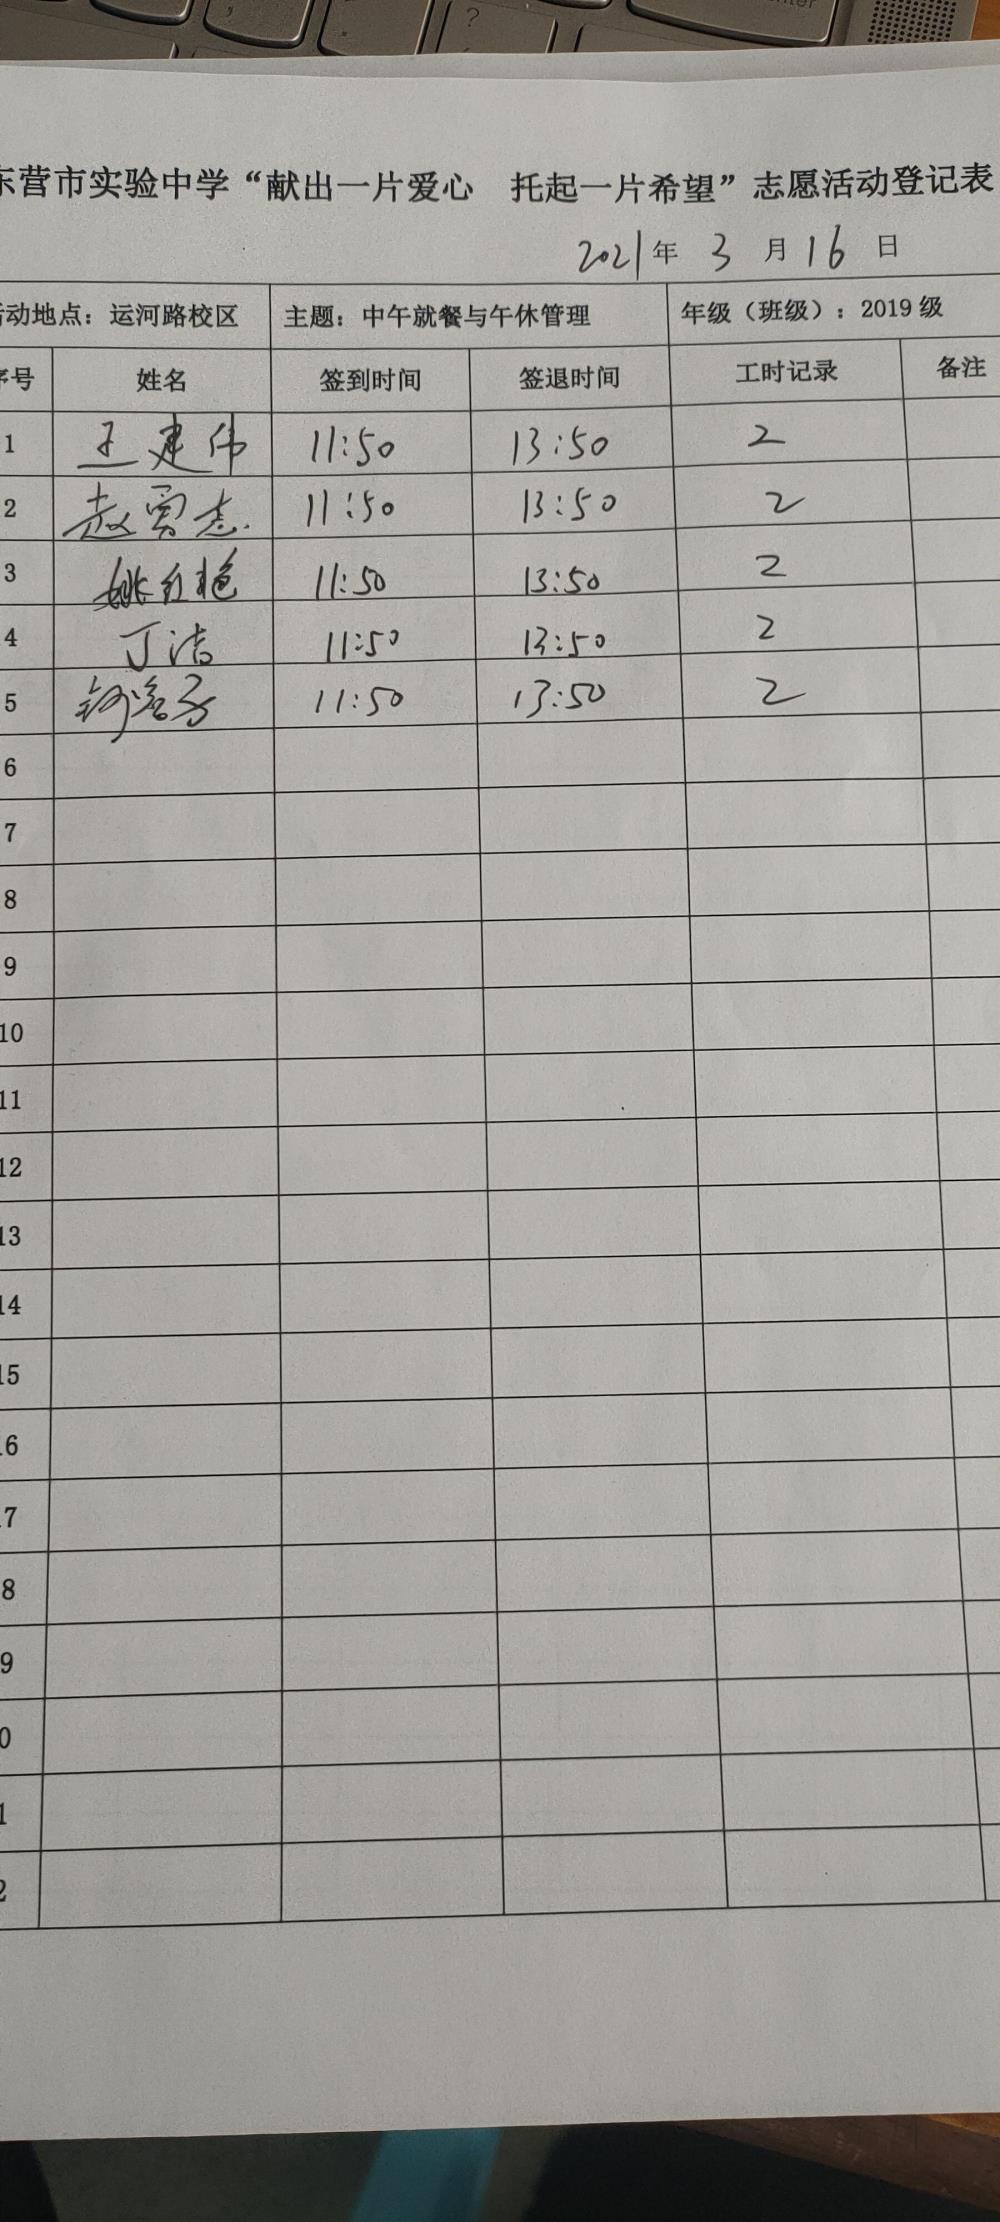 东营市实验中学“献出一片爱心 托起一片希望”志愿活动登记表
2021年 3 月 16 日
活动地点：运河路校区 主题：中午就餐与午休管理 年级（班级）：2019 级
序号 姓名 签到时间 签退时间 工时记录 备注
1 王建伟 11:50 13:50 2
2 赵 志 11:50 13:50 2
3 姚红艳 11:50 13:50 2
4 丁洁 11:50 13:50 2
5 11:50 13:50 2
6
7
8
9
10
11
12
13
14
15
16
17
8
9
0
1
2